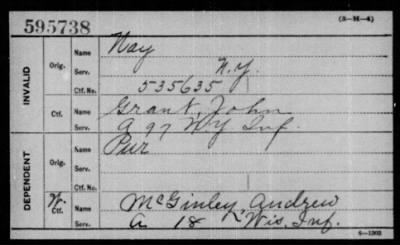 595738
(3—H—4)
INVALID
Orig.
Name
Nay
Serv.
N.Y.
Ctf. No.
535635
Ctf.
Name
Grant, John
Serv.
A 97 NY Inf.
DEPENDENT
Orig.
Name
Pur
Serv.
Ctf. No.
Ctf.
Name
McGinley, Andrew
Serv.
A 18 Wis. Inf.
6—1903